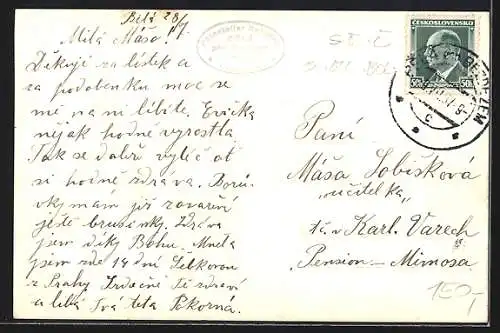 Bělá 28/7
Milá Mášo!
Děkuji za lístek a
za podobenku moc se
mé na ní líbíte. Evička
nějak hodně vyrostla
Tak se dobře vyleč ať
si hodně zdráva. Borů-
vky mám již zavařené
ještě brusinky. Zdráva
jsem díky Bohu. Měla
jsem zde 14 dní
z Prahy Srdečně Tě zdraví
a líbá Tvá teta Pokorná.
ČESKOSLOVENSKO
50h 50h
Paní
Máša Sobišková
"učitelka"
t.č. v Karl. Varech
Pension - Mimosa
1E0,-